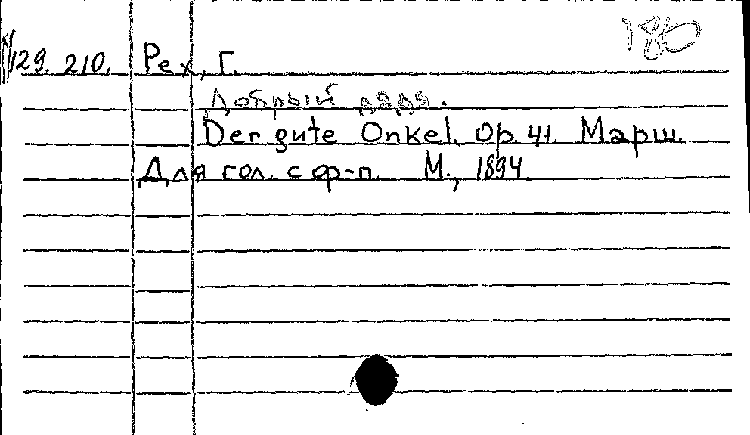 180
N29.210. Рех, Г.
Добрый дядя.
Der gute Onkel. Op. 41. Марш.
Для гол. с ф-п. М., 1894.